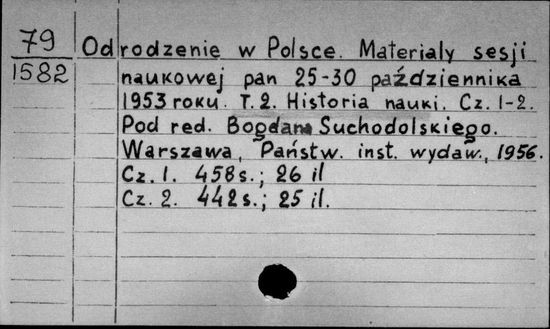 79
1582
Odrodzenie w Polsce. Materialy sesji
naukowej pan 25-30 października
1953 roku. T.2. Historia nauki. Cz. 1-2.
Pod red. Bogdana Suchodolskiego.
Warszawa, Państw. inst. wydaw., 1956.
Cz. 1. 458s.; 26 il
Cz. 2. 442s.; 25 il.